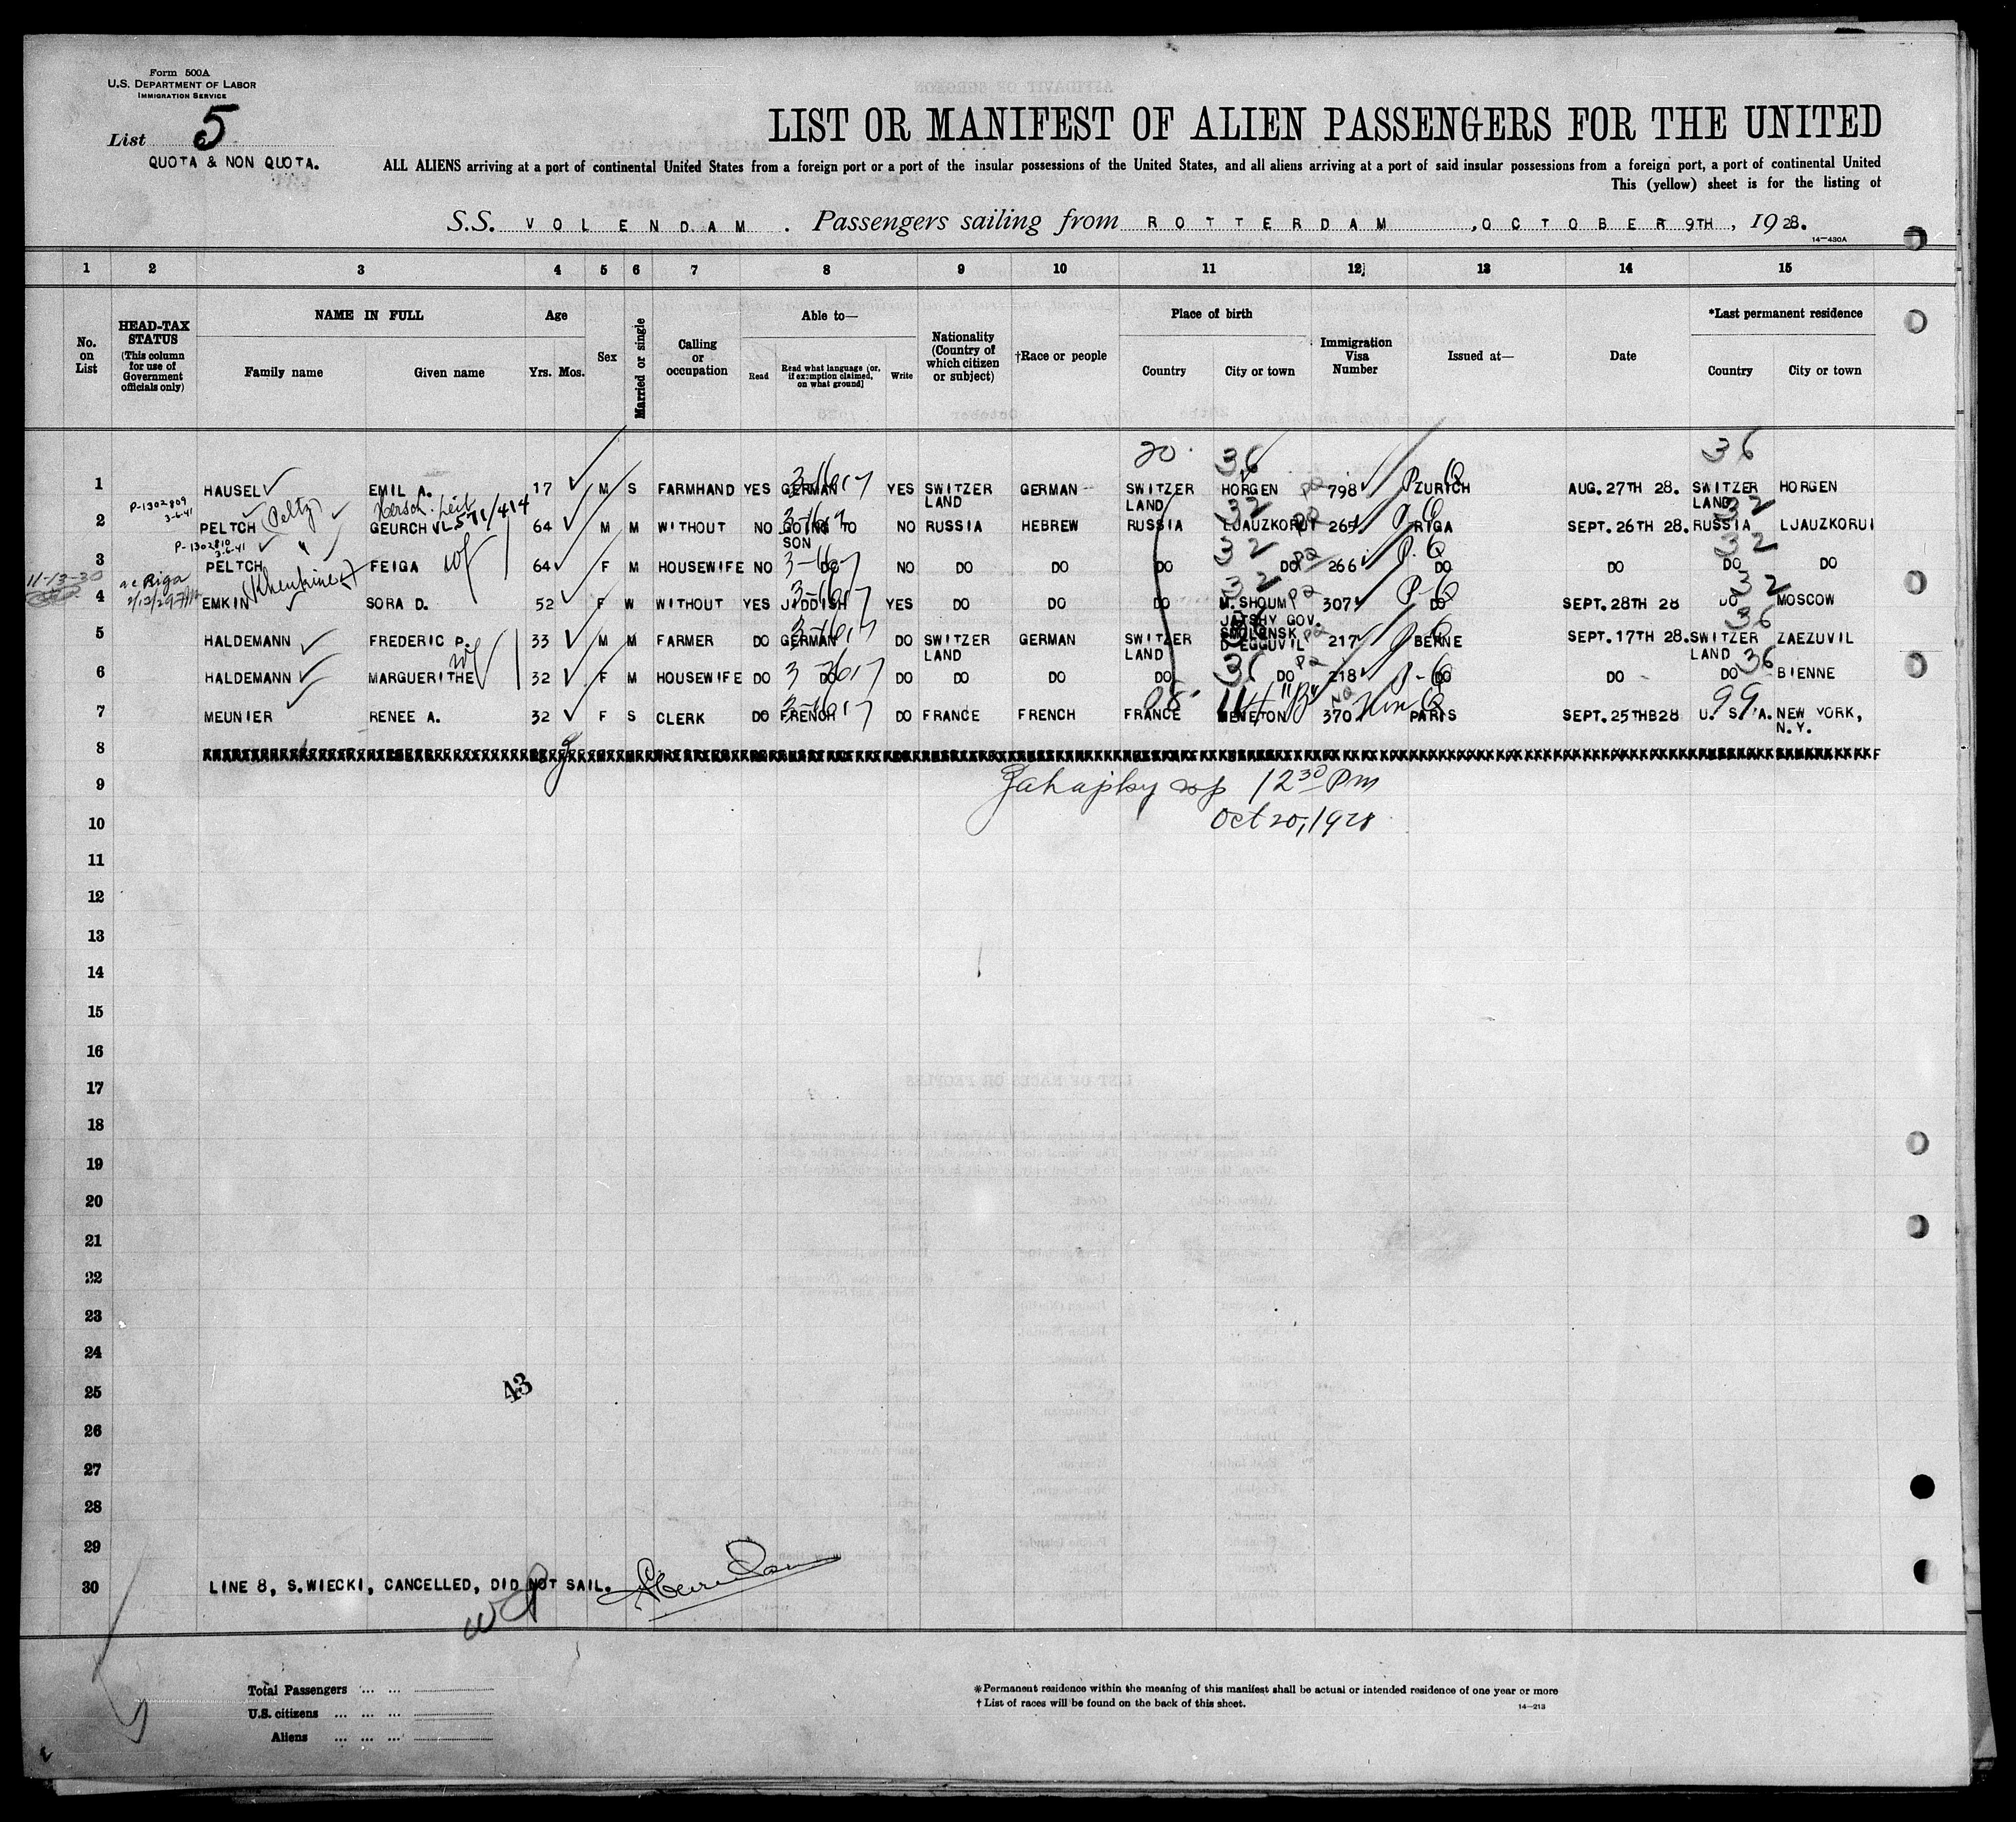 Form 500A
U.S. DEPARTMENT OF LABOR
IMMIGRATION SERVICE
List 5
QUOTA & NON QUOTA.
LIST OR MANIFEST OF ALIEN PASSENGERS FOR THE UNITED
ALL ALIENS arriving at a port of continental United States from a foreign port or a port of the insular possessions of the United States, and all aliens arriving at a port of said insular possessions from a foreign port, a port of continental United
This (yellow) sheet is for the listing of
S.S. VOLENDAM. Passengers sailing from ROTTERDAM, OCTOBER 9TH, 1928.
14—430A
1 2 3 4 5 6 7 8 9 10 11 12 13 14 15
No. on List
HEAD-TAX STATUS (This column for use of Government officials only)
NAME IN FULL
Family name Given name
Age
Yrs. Mos.
Sex
Married or single
Calling or occupation
Able to—
Read Read what language [or, if exemption claimed, on what ground] Write
Nationality (Country of which citizen or subject)
†Race or people
Place of birth
Country City or town
Immigration Visa Number
Issued at—
Date
*Last permanent residence
Country City or town
20 36 36
1 HAUSEL EMIL A. 17 M S FARMHAND YES GERMAN YES SWITZER LAND GERMAN SWITZER LAND HORGEN 798 ZURICH AUG. 27TH 28. SWITZER LAND HORGEN
P-1302809
3-6-41
(Peltz) Hersch Leib 571/414
2 PELTCH GEURCH L. 64 M M WITHOUT NO GOING TO SON NO RUSSIA HEBREW RUSSIA LJAUZKORUI 265 RIGA SEPT. 26TH 28. RUSSIA LJAUZKORUI
P-1302810
3-6-41
3 PELTCH " FEIGA wf 64 F M HOUSEWIFE NO DO NO DO DO DO DO 266 DO DO DO DO
11-13-30
Riga
2/12/29
4 EMKIN SORA D. 52 F W WITHOUT YES JIDDISH YES DO DO DO M. SHOUM JATSHY GOV. SMOLENSK 307 DO SEPT. 28TH 28 DO MOSCOW
5 HALDEMANN FREDERIC P. 33 M M FARMER DO GERMAN DO SWITZER LAND GERMAN SWITZER LAND D EGGUVIL 217 BERNE SEPT. 17TH 28. SWITZER LAND ZAEZUVIL
6 HALDEMANN MARGUERITHE wf 32 F M HOUSEWIFE DO DO DO DO DO DO DO 218 DO DO DO BIENNE
7 MEUNIER RENEE A. 32 F S CLERK DO FRENCH DO FRANCE FRENCH FRANCE MENETON 370 PARIS SEPT. 25THB28 U. S. A. NEW YORK, N.Y.
8
9 12 30 Pm
10 Oct 20, 1928
11
12
13
14
15
16
17
18
19
20
21
22
23
24
43
25
26
27
28
29
30 LINE 8, S.WIECKI, CANCELLED, DID NOT SAIL.
Total Passengers
U.S. citizens
Aliens
*Permanent residence within the meaning of this manifest shall be actual or intended residence of one year or more
† List of races will be found on the back of this sheet.
14—213